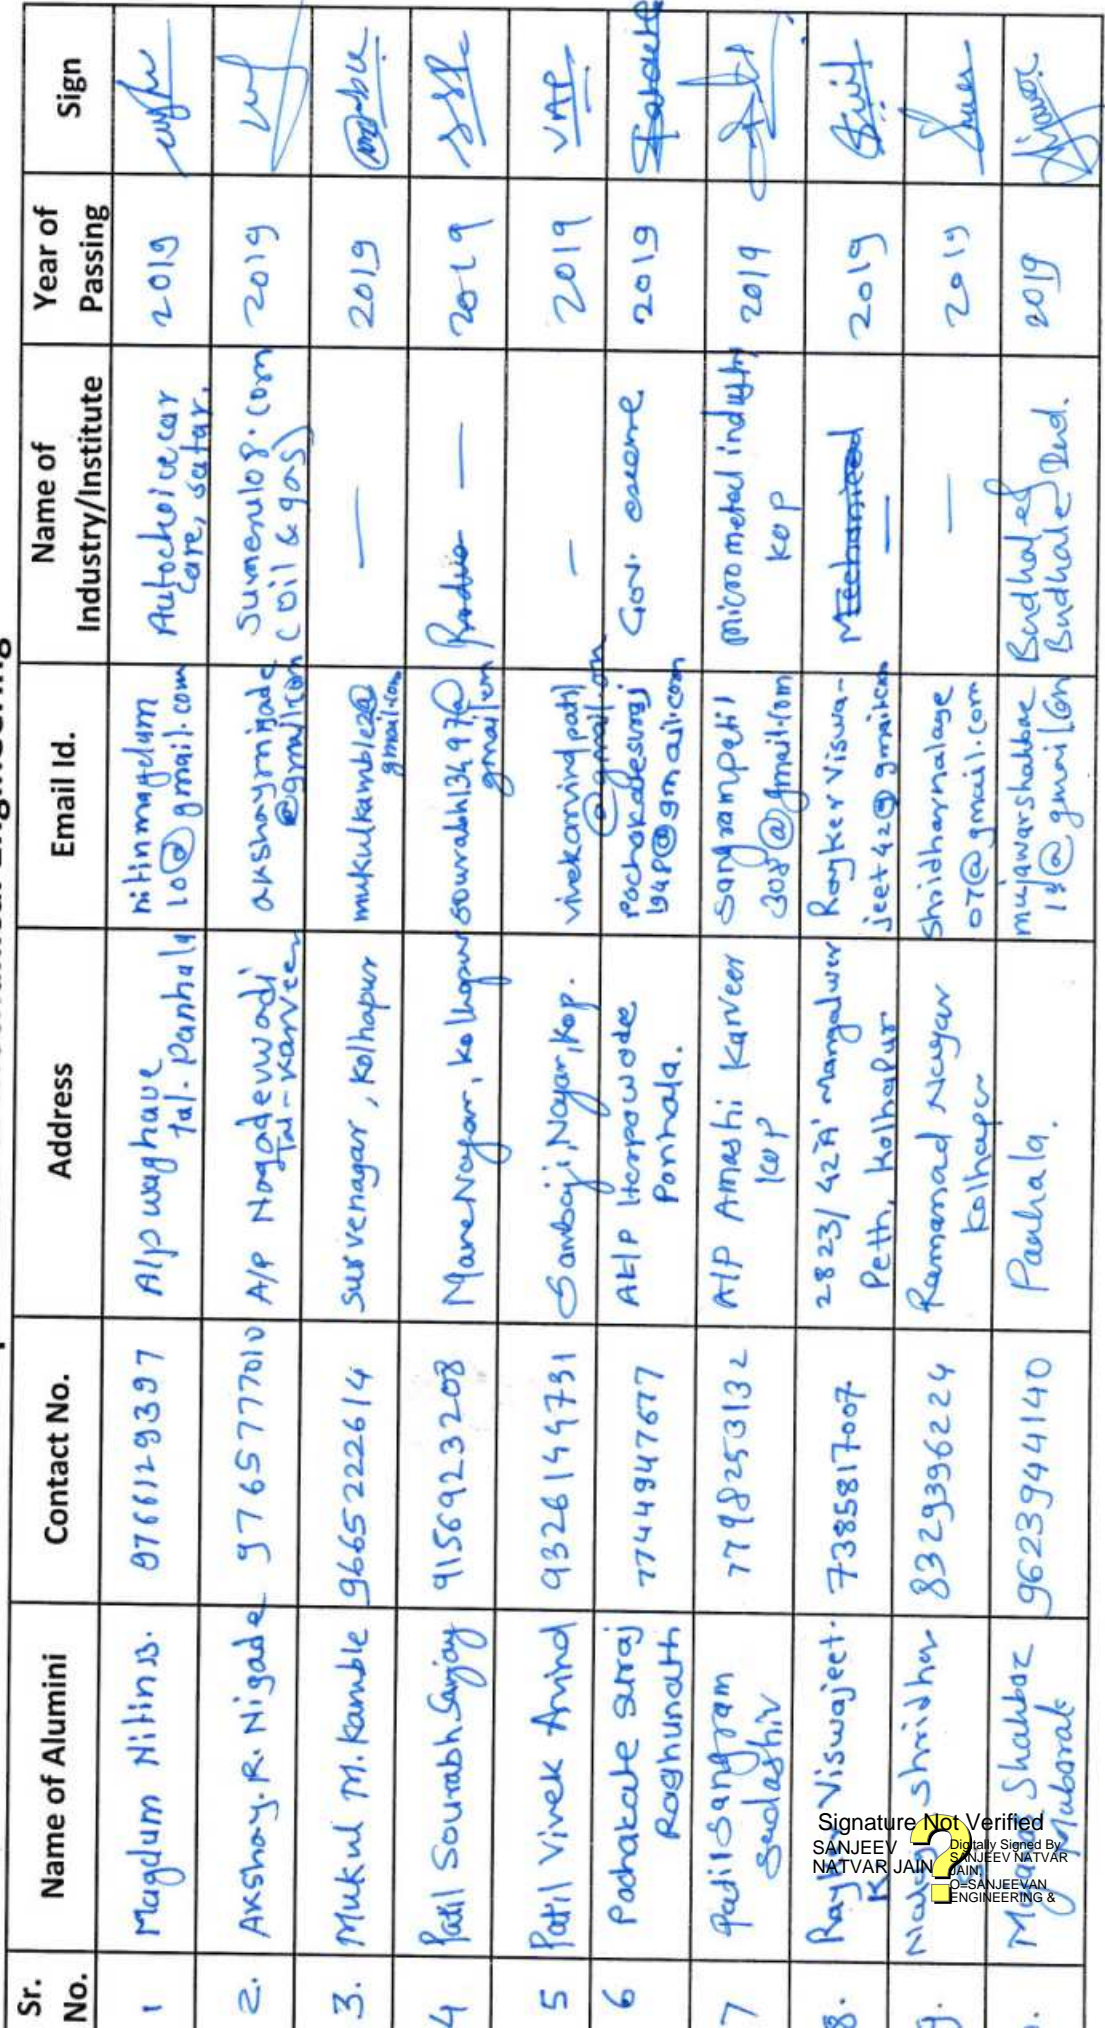 Sr.
No.
Name of Alumini
Contact No.
Address
Email Id.
Name of
Industry/Institute
Year of
Passing
Sign
1
Magdum Nitin B.
9766129397
A/p waghave
tal- Panhala
nitinmagdum
10@gmail.com
Autochoice car
care, satar.
2019
2.
Akshay. R. Nigade
9765777010
A/P Nagadewadi
Tal-Karveer
akshayrnigade
@gmail.com
Sumenulog.com
(oil & gas)
2019
3.
Mukul M. Kamble
9665222614
Survenagar, Kolhapur
mukulkamble2@
gmail.com
—
2019
4
Patil Sourabh Sanjay
9156923208
Mane Nagar, Kolhapur
sourabh13497@
gmail.com
—
2019
SSP
5
Patil Vivek Arvind
9326144731
Sambaji Nagar, Kop.
vivekarvindpatil
@gmail.com
—
2019
VAP
6
Pachakate Suraj
Raghunath
7744947677
At/P
Panhala.
pachakatesuraj
1948@gmail.com
Gov. exame
2019
7
Patil Sangram
Sadashiv
7798253132
A/P Amashi Karveer
KOP
sangrampatil
308@gmail.com
micrometal industry
KOP
2019
8.
Viswajeet.
K
7385817007
2823/42 'A' Mangalwar
Peth, Kolhapur
Raykerviswa-
jeet42@gmail.com
Mechanical
—
2019
9.
Shridhar
8329396224
Ramanad Nagar
Kolhapur
Shridharnalage
07@gmail.com
—
2019
Shahbaz
Mubarak
9623944140
Panhala.
mujawarshahbaz
18@gmail.com
Budhale &
Budhale Ind.
2019
Signature Not Verified
SANJEEV
NATVAR JAIN
Digitally Signed By
SANJEEV NATVAR
JAIN,
O=SANJEEVAN
ENGINEERING &